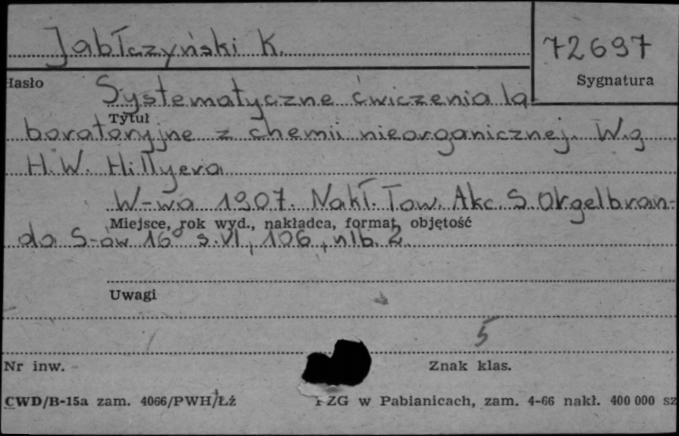 Jabłczyński K.
72697
Hasło
Sygnatura
Systematyczne ćwiczenia la-
Tytuł
boratoryjne z chemii nieorganicznej. W.g
H.W. Hillyera
W-wa 1907. Nakł. Tow. Akc. S. Orgelbran-
Miejsce, rok wyd., nakładca, format, objętość
da S-ów 16° s. VI, 106, nlb. 2
Uwagi
5
Nr inw.
Znak klas.
CWD/B-15a zam. 4066/PWH/Łź
PZG w Pabianicach, zam. 4-66 nakł. 400 000 sz